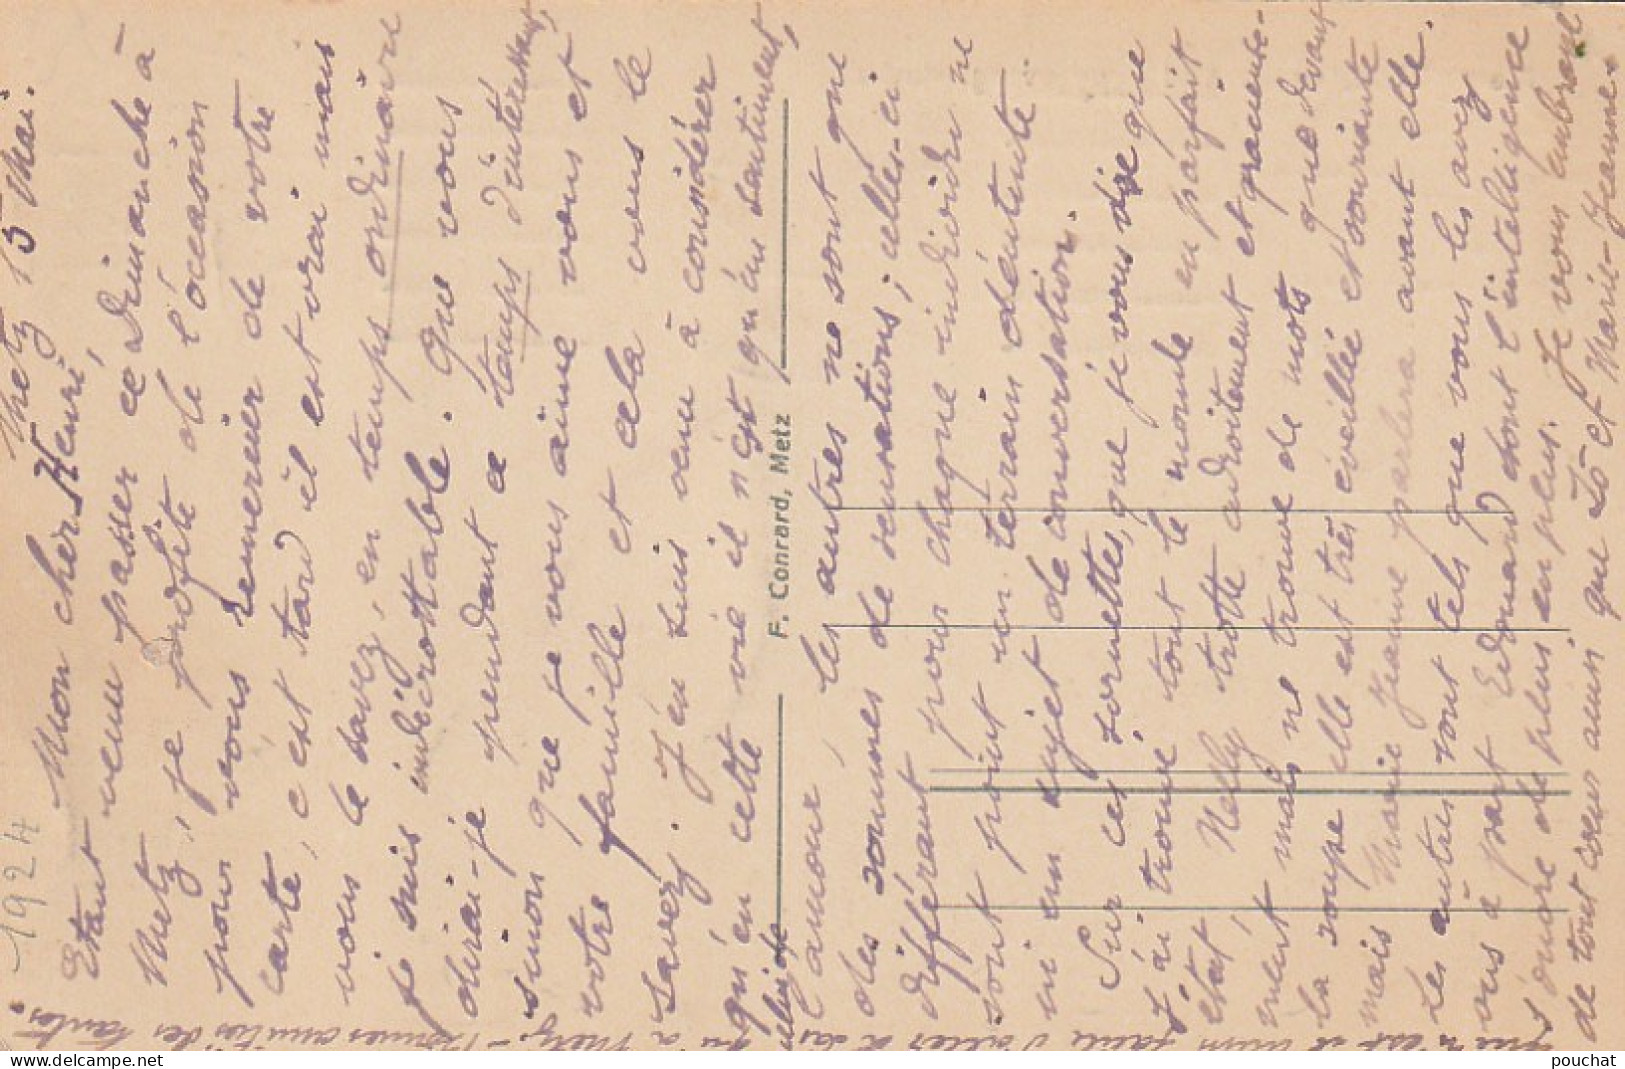 1924
Metz 15 Mai.
Mon cher Henri,
Etant venu passer ce Dimanche à
Metz, je profite de l'occasion
pour vous remercier de votre
carte, c'est tard il est vrai mais
vous le savez, en temps ordinaire
je suis indécrottable. Que vous
dirai-je pendant ce temps d'intéressant,
sinon que je vous aime vous et
votre famille et cela vous le
savez. J'en suis venu à considérer
qu'en cette vie il n'est qu'un sentiment,
celui de
l'amour, les autres ne sont que
des sommes de sensations; celles-ci
différant pour chaque individu ne
sont point un terrain d'entente
ni un sujet de conversation.
Sur ces sornettes, que je vous dise que
j'ai trouvé tout le monde en parfait
état, Nelly trotte adroitement et gracieuse-
ment mais ne trouve de mots que devant
la soupe elle est très éveillée et souriante
mais Marie Jeanne parlera avant elle.
Les autres sont tels que vous les avez
vus à part Edouard dont l'intelligence
s'ouvre de plus en plus. Je vous embrasse
de tout coeur ainsi que Lô et Marie-Jeanne.
F. Conrard, Metz
pouchat